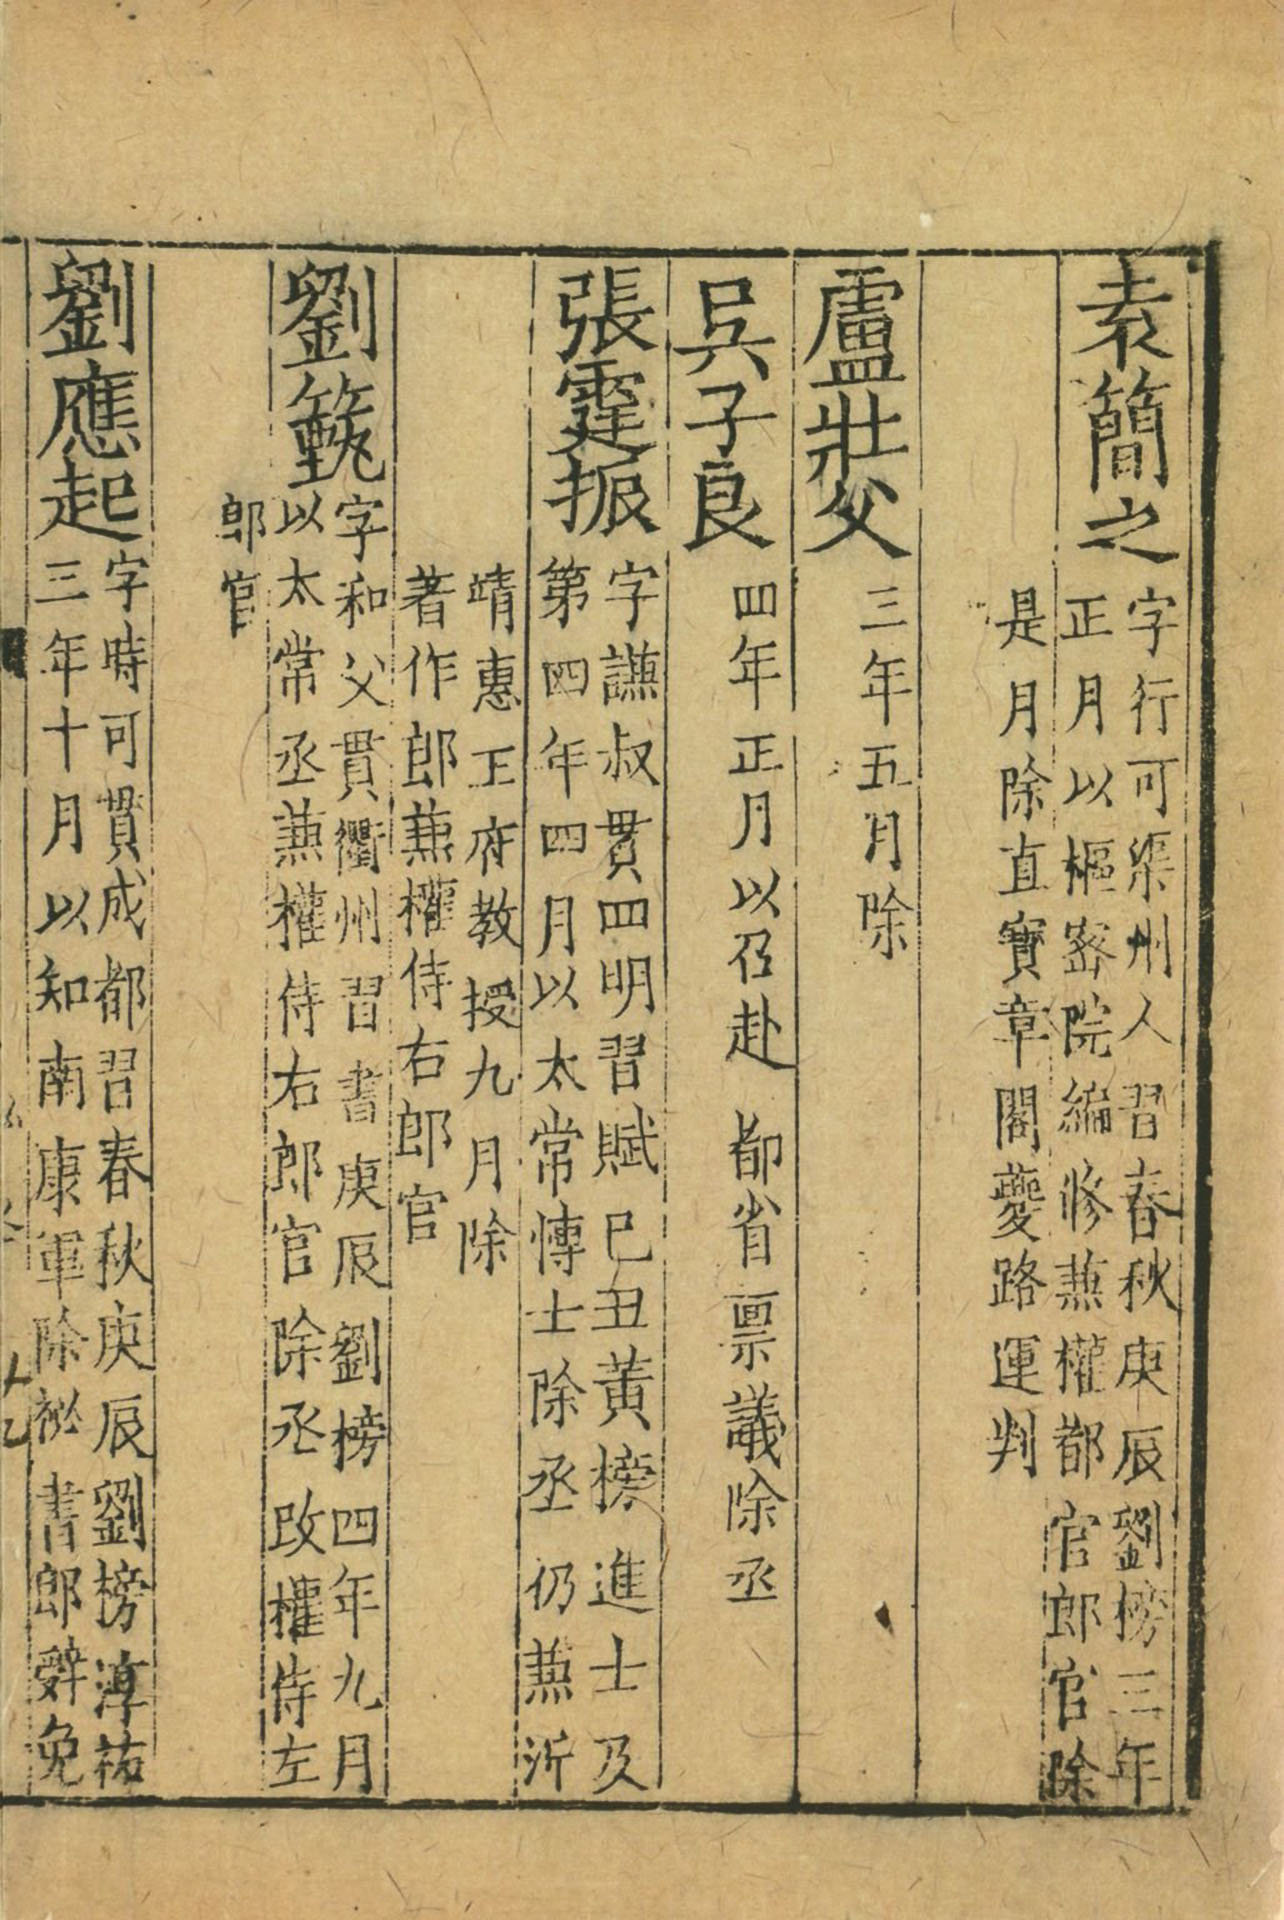 袁簡之
字行可渠州人習春秋庚辰劉榜三年
正月以樞密院編修兼權都官郎官除
是月除直寶章閣夔路運判
盧壯父
三年五月除
吳子良
四年正月以召赴 都省稟議除丞
張霆振
字謙叔貫四明習賦己丑黃榜進士及
第四年四月以太常博士除丞仍兼沂
靖惠王府教授九月除
著作郎兼權侍右郎官
劉㙯
字和父貫衢州習書庚辰劉榜四年九月
以太常丞兼權侍右郎官除丞改權侍左
郎官
劉應起
字時可貫成都習春秋庚辰劉榜淳祐
三年十月以知南康軍除祕書郎辭免